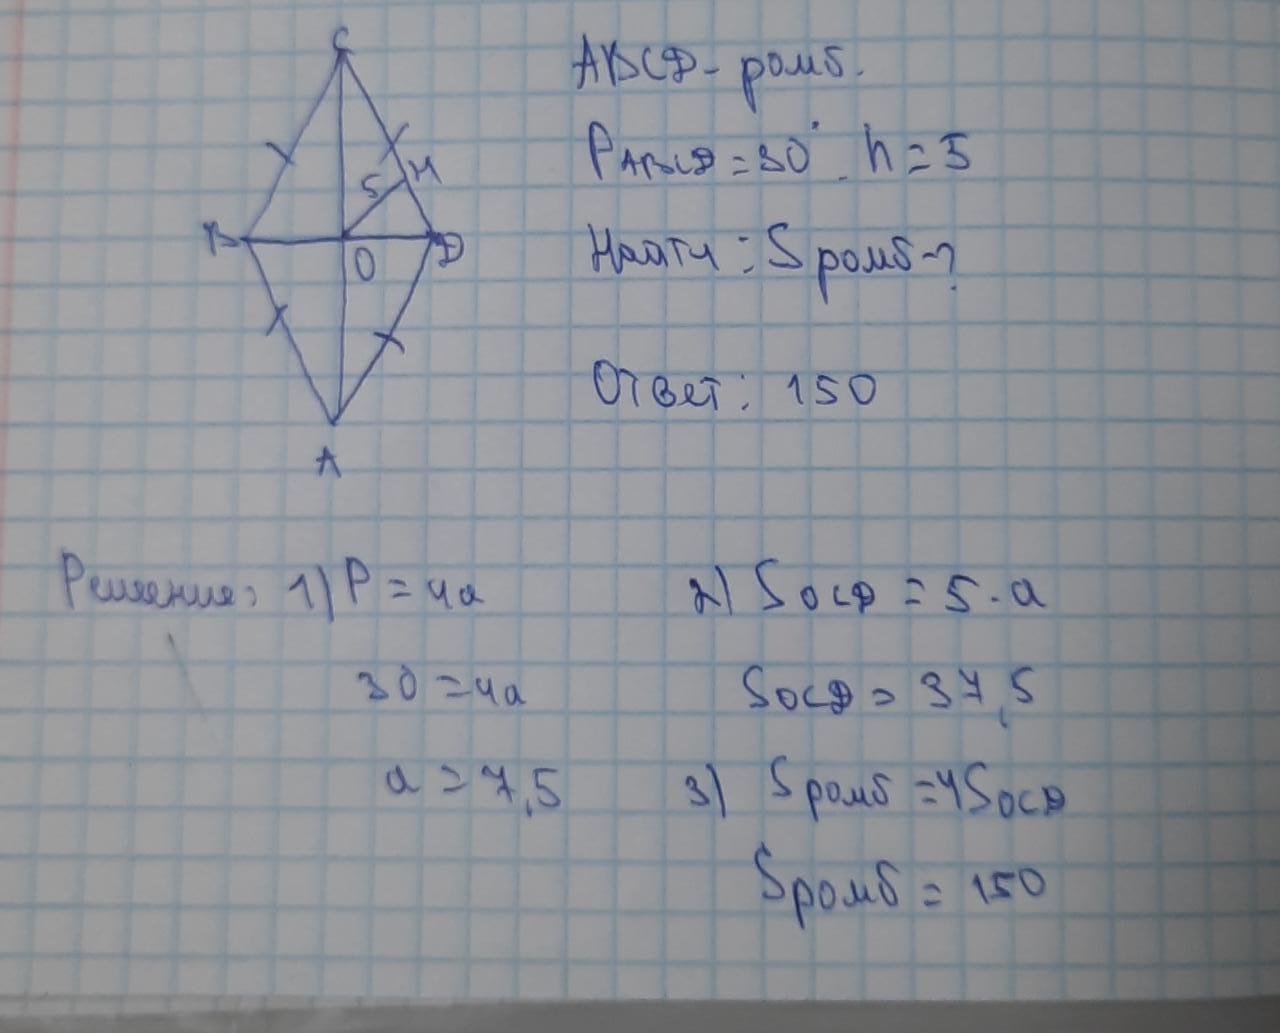 C
ABCD - ромб.
PABCD = 30 . h = 5
5 H
B O D
Найти : S ромб - ?
Ответ : 150
A
Решение: 1) P = 4a
30 = 4a
a = 7,5
2) SOCD = 5 · a
SOCD = 37,5
3) Sромб = 4SOCD
Sромб = 150